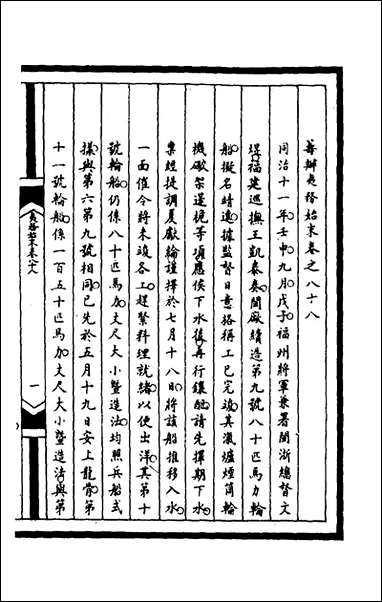 籌辦夷務始末卷之八十八
同治十一年壬申九月戊子福州將軍兼署閩浙總督文
煜福建巡撫王凱泰奏閩廠續造第九號八十匹馬力輪
船擬名靖遠據監督日意格稱工已完竣其滊爐煙筒輪
機礮架還桅等項應俟下水後再行鑲配請先擇期下水
業經提調夏獻綸謹擇於七月十八日將該船推移入水
一面催令將未竣各工趕緊料理就緒以便出洋其第十
號輪船仍係八十匹馬力丈尺大小暨造法均照兵船式
樣與第六第九號相同已先於五月十九日安上龍骨第
十一號輪船係一百五十匹馬力丈尺大小暨造法與第
夷務始末卷八十八
一